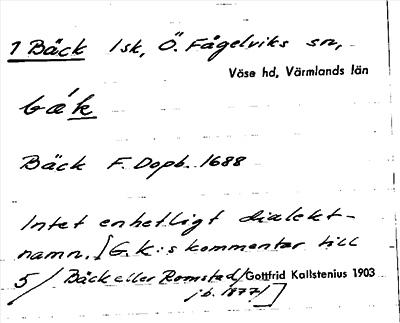 1 Bäck 1sk, Ö. Fågelviks sn,
Väse hd, Värmlands län
bǽk
Bäck F. Dopb. 1688
Intet enhetligt dialekt-
namn. [G. K:s kommentar till
5/ Bäck eller Romstad/ Gottfrid Kallstenius 1903
jb. 1877/]